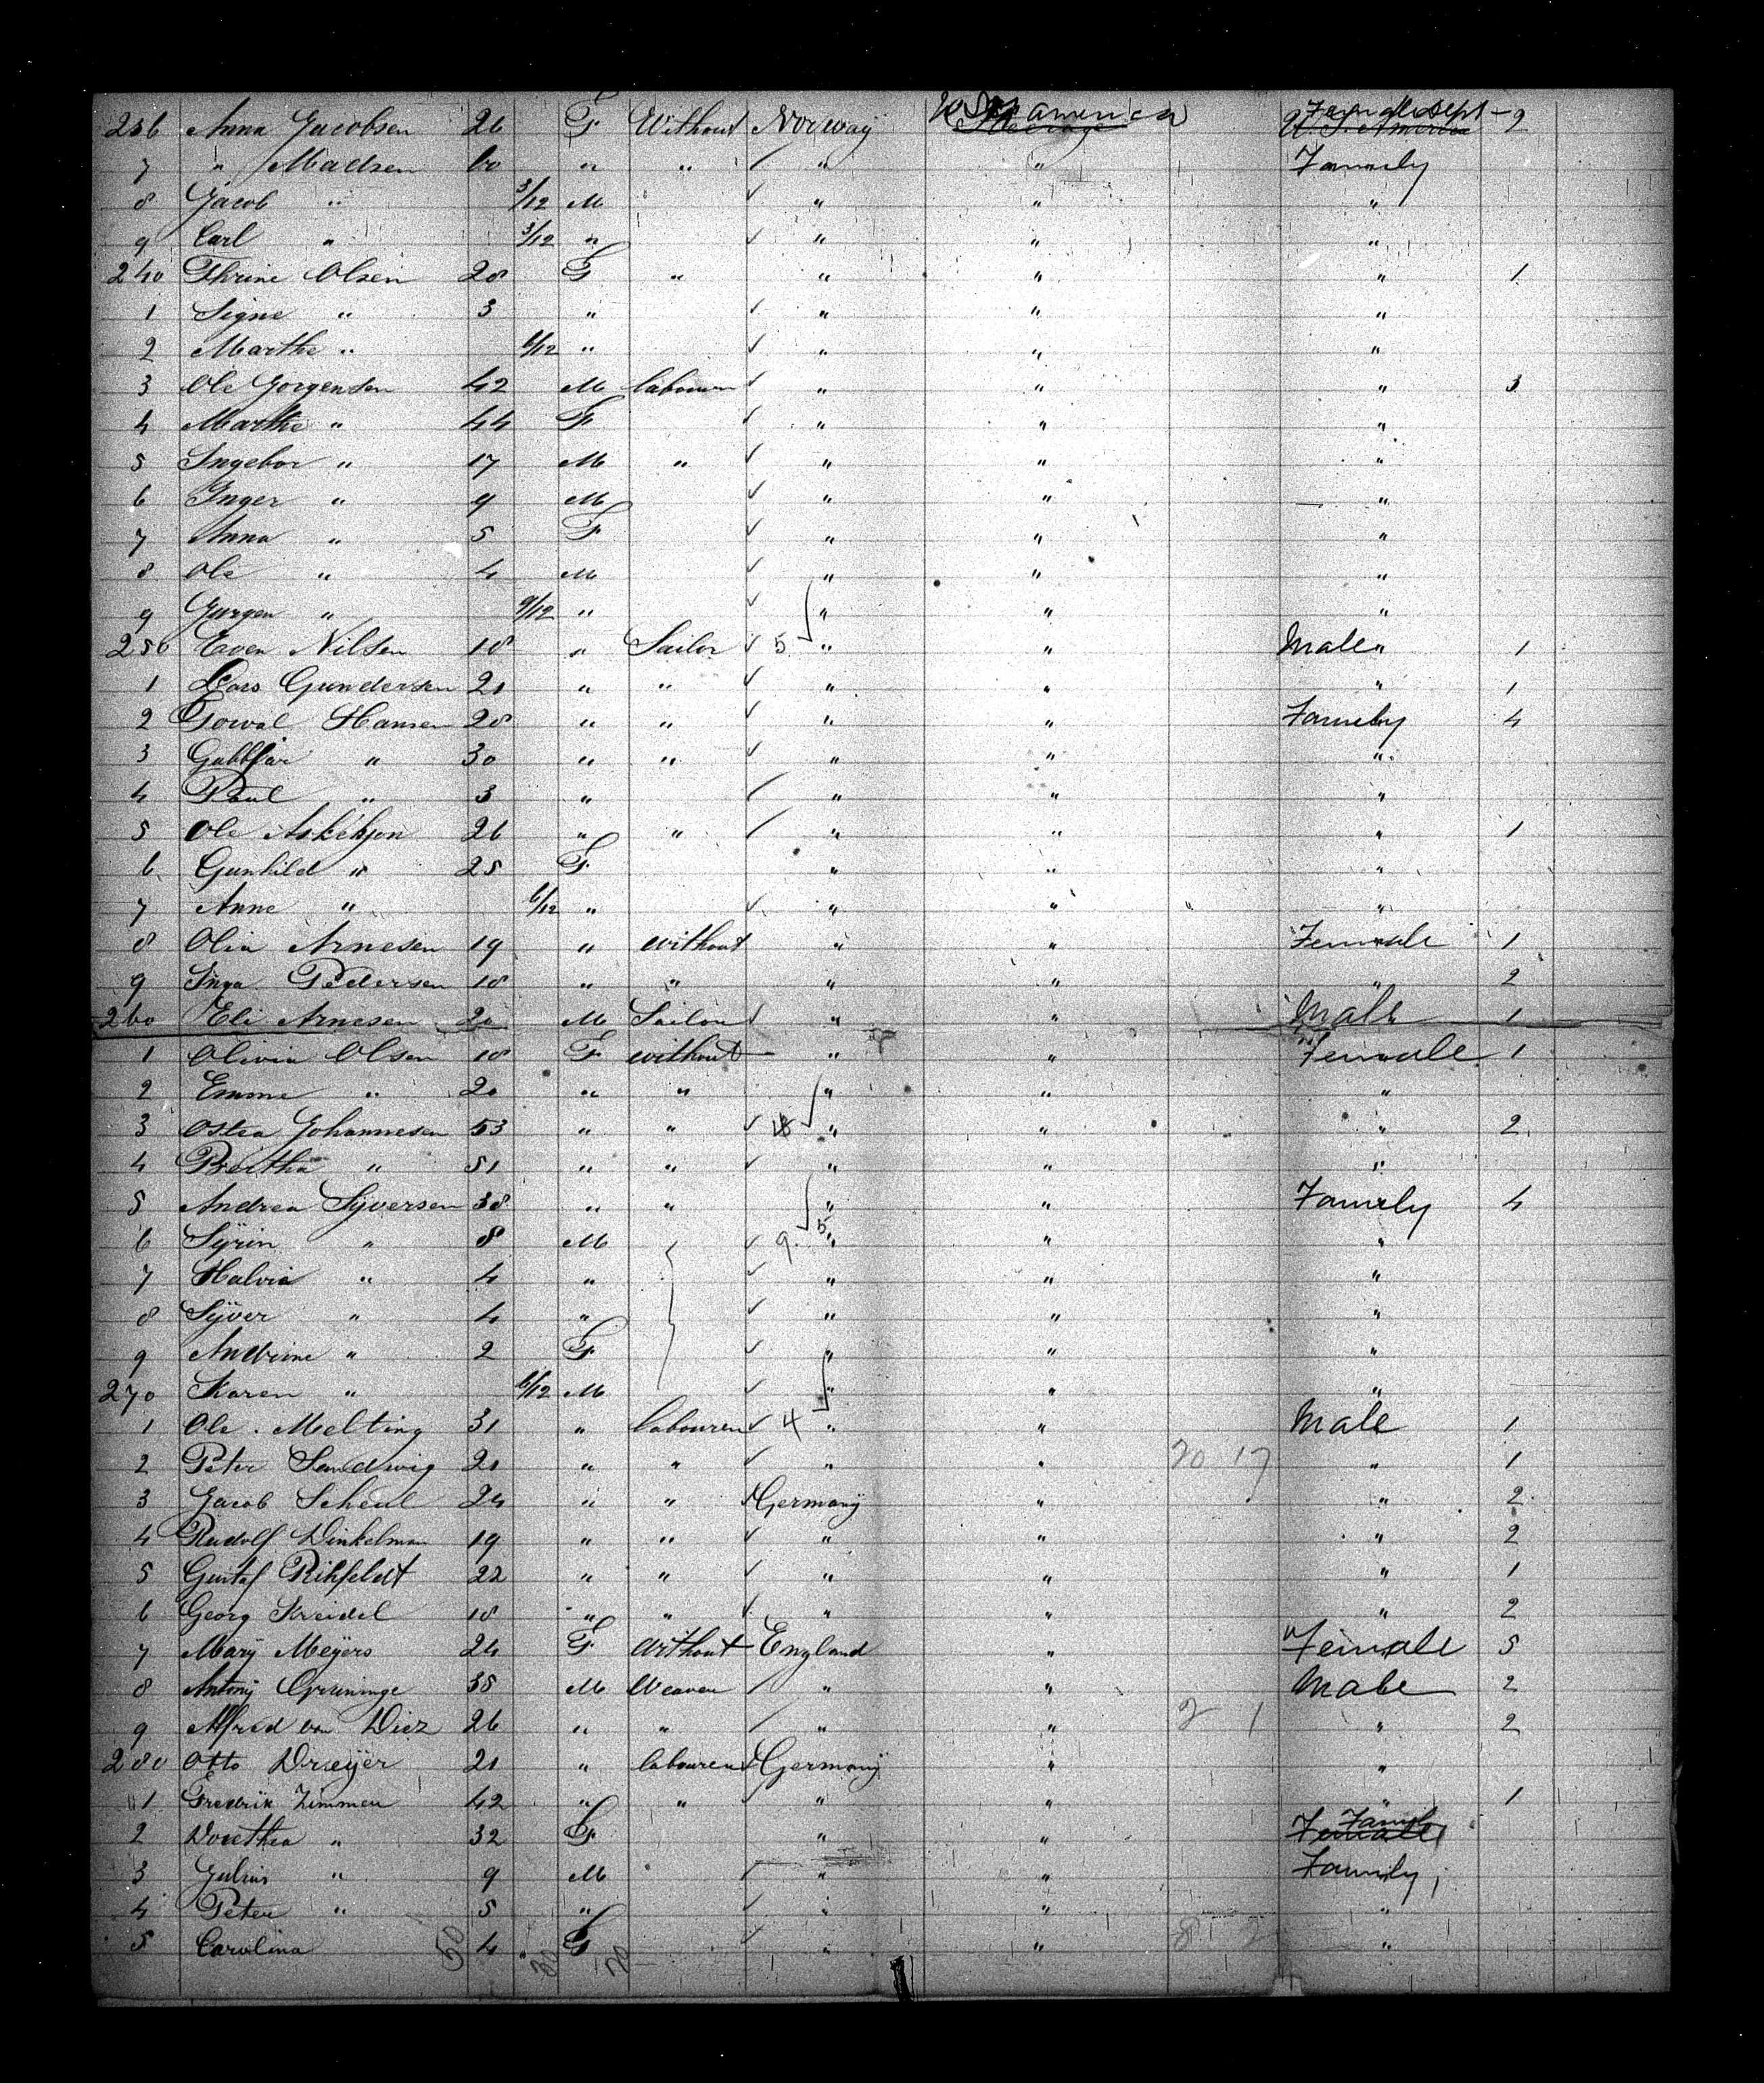 236 Anna Jacobsen 26 F Without Norway U.S. america Steerage Female Dept U.S. America 2
7 " Madsen 60 " " " " Famely
8 Jacob " 3/12 M " " "
9 Carl " 3/12 " " " "
240 Thrine Olsen 28 F " " " " 1
1 Signe " 3 " " " "
2 Marthe " 6/12 " " " "
3 Ole Jorgensen 42 M labourer " " " 3
4 Marthe " 44 F " " "
5 Ingebor " 17 M " " " "
6 Inger " 9 M " " "
7 Anna " 5 F " " "
8 Ole " 4 M " " "
9 Jurgen " 9/12 " " " "
250 Even Nilsen 18 " Sailor 5 " " Male " 1
1 Lars Gundersen 21 " " " " " 1
2 Torval Hansen 28 " " " " Famely 4
3 " 30 " " " " "
4 Paul " 3 " " " "
5 Ole 26 " " " " " 1
6 Gunhild " 25 F " " "
7 Anne " 6/12 " " " "
8 Olia Arnesen 19 " without " " Female 1
9 Inga Pedersen 18 " " " " " 2
260 Eli Arnesen 20 M Sailor " " Male 1
1 Olivia Olsen 18 F without " " Female 1
2 Emme " 20 " " " " "
3 Ostea Johannesen 53 " " " " " 2
4 Bertha " 51 " " " " "
5 Andrea Syversen 38 " " " " Famely 4
6 Syrin " 8 M 9 5 " " "
7 Halvia " 4 " " " "
8 Syver " 4 " " " "
9 Andrine " 2 F " " "
270 Karen " 6/12 M " " "
1 Ole Melting 31 " labourer 4 " " Male 1
2 Peter Sandwig 21 " " " " 20 17 " 1
3 Jacob Scheul 24 " " Germany " " 2
4 Rudolf Dinkelman 19 " " " " " 2
5 Gustaf Rihfeldt 22 " " " " " 1
6 Georg Kreidel 18 " " " " " 2
7 Mary Meyers 24 F without England " Female 5
8 Antony Gruninge 38 M Weaver " " Male 2
9 Alfred von Diez 26 " " " " 2 1 " 2
280 Otto Dreyer 21 " labourer Germany " "
1 Fredrik Zimmer 42 " " " " " 1
2 Dorethea " 32 F " " Female Famely
3 Julius " 9 M " " Famely
4 Peter " 5 " " " "
5 Carolina 4 F " " 8 "
50 30 20